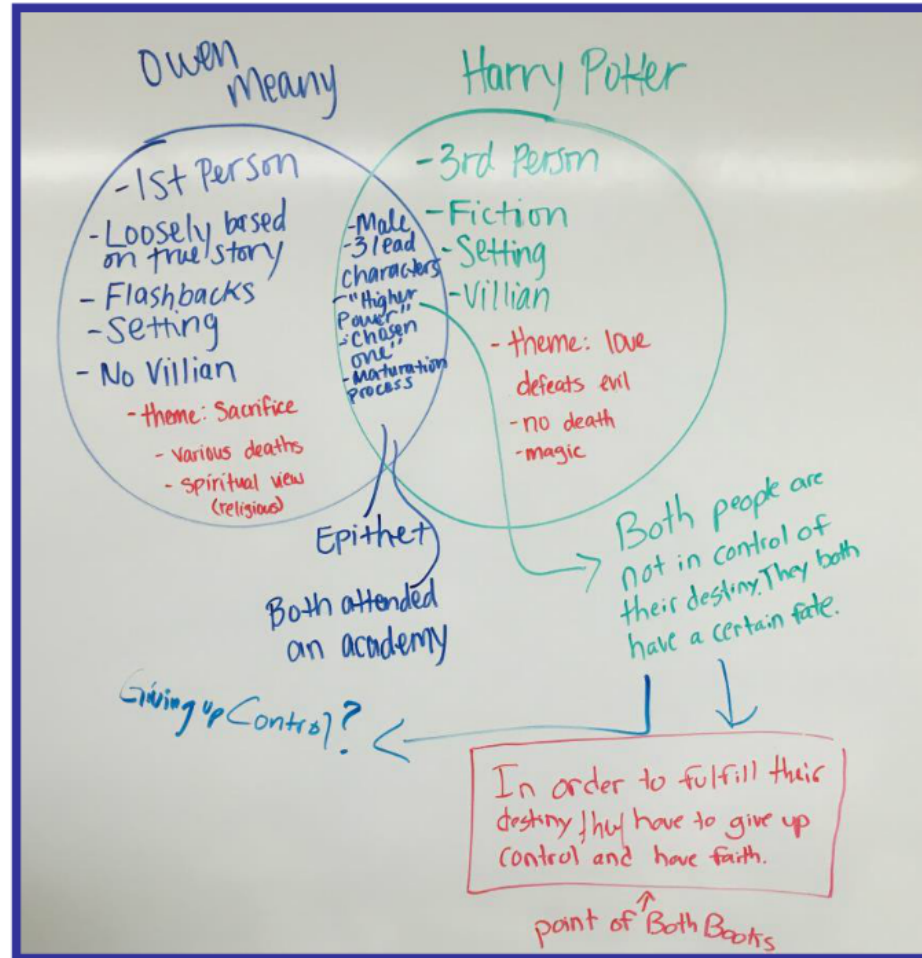 Owen
Meany
Harry Potter
-1st Person
-Loosely based
on true story
- Flashbacks
- Setting
- No Villian
- theme: Sacrifice
- various deaths
- spiritual view
(religious)
-Male
-3 lead
characters
-"Higher
Power"
-"Chosen
one"
-Maturation
process
-3rd Person
-Fiction
-Setting
-Villian
- theme: love
defeats evil
-no death
-magic
Epithet
Both attended
an academy
Both people are
not in control of
their destiny. They both
have a certain fate.
Giving up Control?
In order to fulfill their
destiny they have to give up
control and have faith.
point of Both Books